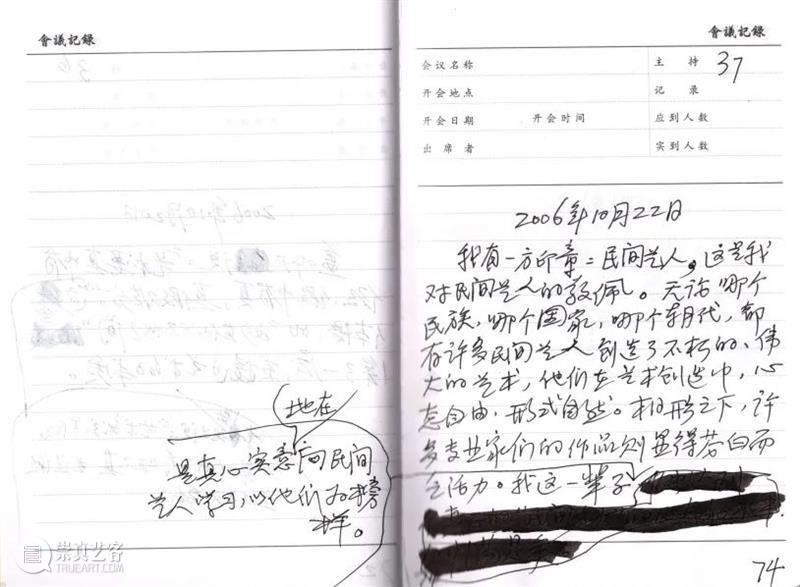 會議記錄
地在
是真心实意向民间
艺人学习,以他们为榜
样。
會議記錄
会议名称 主 持 37
开会地点 记 录
开会日期 开会时间 应到人数
出 席 者 实到人数
2006年10月22日
我有一方印章:民间艺人。这是我
对民间艺人的敬佩。无论哪个
民族,哪个国家,哪个朝代,都
有许多民间艺人创造了不朽的、伟
大的艺术,他们在艺术创造中,心
态自由,形式自然。相形之下,许
多专业家们的作品则显得苍白而
乏活力。我这一辈子
74
崇真艺客